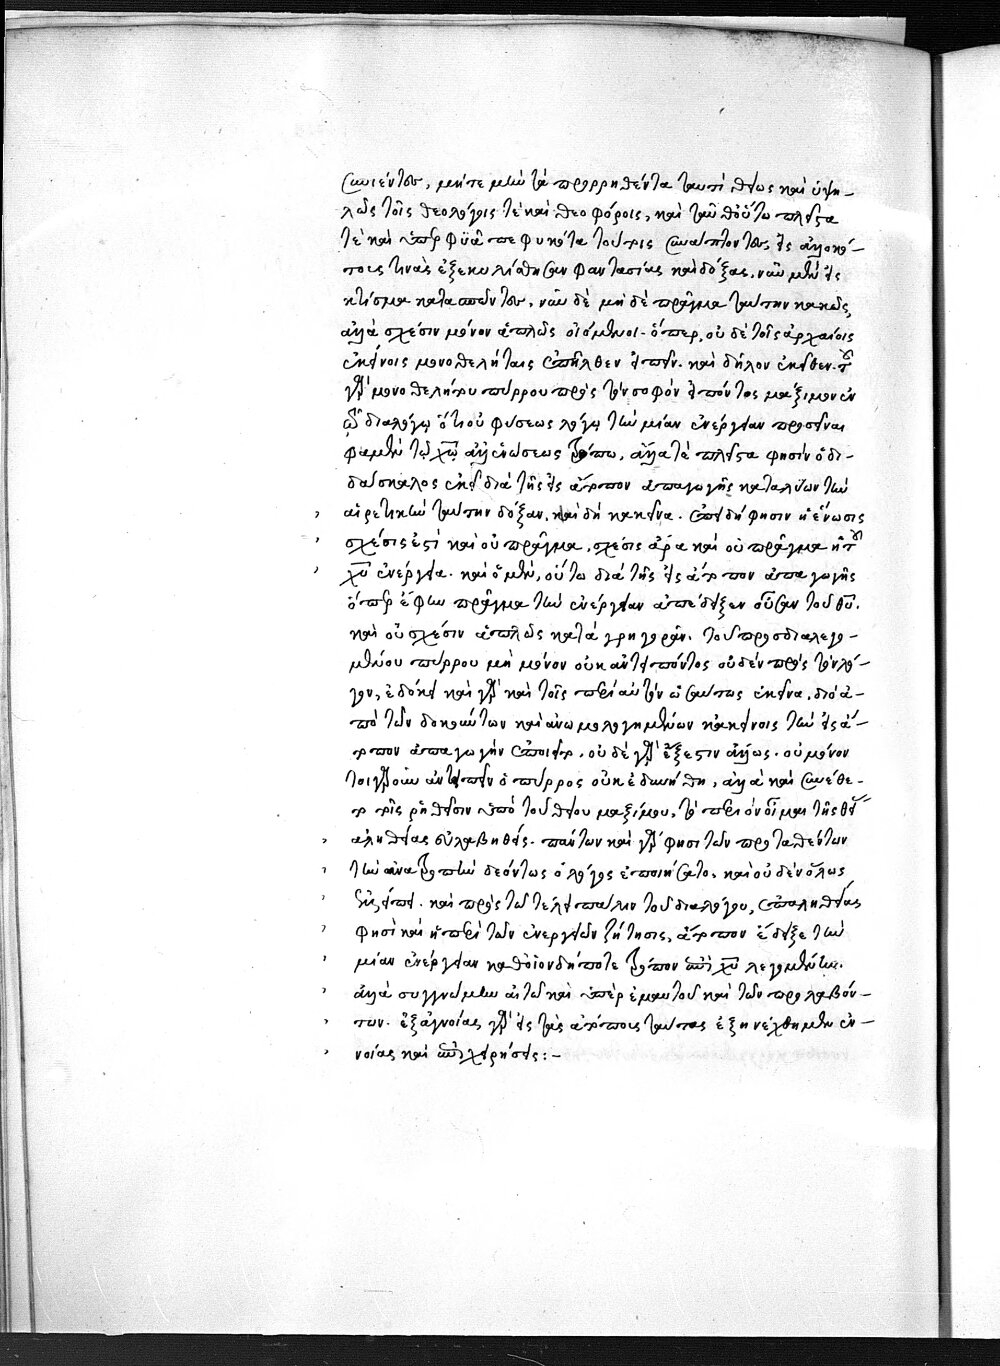 συνιέντων, μήτε μὴν τὰ προρρηθέντα ταυτὶ θείως καὶ ὑψη-
λῶς τοῖς θεολόγοις τὲ καὶ θεοφόροις, καὶ ταῦθ' οὕτω πλεῖστα
τὲ καὶ ὑπερφυᾶ πεφυκότα τούτοις συνάπτοντες εἰς ἀλλοκό-
τους τινὰς ἐξεκυλίσθησαν φαντασίας καὶ δόξας, νῦν μὲν εἰς
κτίσμα κατασπῶντες, νῦν δὲ μηδὲ πρᾶγμα ταύτην κακῶς,
ἀλλὰ σχέσιν μόνον ἁπλῶς οἰόμενοι· ὅπερ, οὐδὲ τοῖς ἀρχαίοις
ἐκείνοις μονοθελήταις ἐπῆλθεν εἰπεῖν. καὶ δῆλον ἐκεῖθεν· τοῦ
γὰρ μονοθελήτου πύρρου πρὸς τὸν σοφὸν εἰπόντος μάξιμον ἐν
τῷ διαλόγῳ ὅτι οὐ φύσεως λόγῳ τὴν μίαν ἐνέργειαν προσεῖναι
φαμὲν τῷ χῷ ἀλλ' ἑνώσεως τρόπῳ, ἄλλα τὲ πλεῖστα φησὶν ὁ δι-
δάσκαλος ἐκεῖ διὰ τῆς εἰς ἄτοπον ἀπαγωγῆς καταλύων τὴν
αἱρετικὴν ταύτην δόξαν, καὶ δὴ κἀκεῖνα. ἐπειδή φησιν ἡ ἕνωσις
σχέσις ἐστὶ καὶ οὐ πρᾶγμα, σχέσις ἄρα καὶ οὐ πρᾶγμα ἡ τοῦ
χῦ ἐνέργεια. καὶ ὁ μὲν, οὕτω διὰ τῆς εἰς ἄτοπον ἀπαγωγῆς
ὅπερ ἔφην πρᾶγμα τὴν ἐνέργειαν ἀπέδειξεν οὖσαν τοῦ θῦ.
καὶ οὐ σχέσιν ἁπλῶς κατὰ γρηγορᾶν. τοῦ προσδιαλεγο-
μένου πύρρου μὴ μόνον οὐκ ἀντειπόντος οὐδὲν πρὸς τὸν λό-
γον, ἐδόκει γὰρ καὶ τοῖς περὶ αὐτὸν ὡσαύτως ἐκεῖνα, διὸ ἀ-
πὸ τῶν δοκούντων καὶ ἀνωμολογημένων κἀκείνοις τὴν εἰς ἄ-
τοπον ἀπαγωγὴν ἐποιεῖτο. οὐδὲ γὰρ ἔξεστιν ἄλλως. οὐ μόνον
τοιγαροῦν ἀντειπεῖν ὁ πύρρος οὐκ ἐδυνήθη, ἀλλὰ καὶ συνέθε-
το τοῖς ῥηθεῖσιν ὑπὸ τοῦ θείου μαξίμου,
ἀληθείας εὐλαβηθείς. πάντων καὶ γὰρ φησὶ τῶν προταθέντων
τὴν ἀνατροπὴν δεόντως ὁ λόγος ἐποιήσατο. καὶ οὐδὲν ὅλως
καὶ πρὸς τῷ τέλει πάλιν τοῦ διαλόγου, ἐπ' ἀληθείας
φησὶ καὶ ἡ περὶ τῶν ἐνεργειῶν ζήτησις, ἄτοπον ἔδειξε τὴν
μίαν ἐνέργειαν καθ' οἱονδήποτε τρόπον ἐπὶ χῦ λεγομένην.
ἀλλὰ συγγνώμην αἰτῶ καὶ ὑπὲρ ἐμαυτοῦ καὶ τῶν προλαβόν-
των. ἐξ ἀγνοίας γὰρ εἰς τὰς ἀτόπους ταύτας ἐξηνέχθημεν ἐν-
νοίας καὶ ἐπιχειρήσεις:-